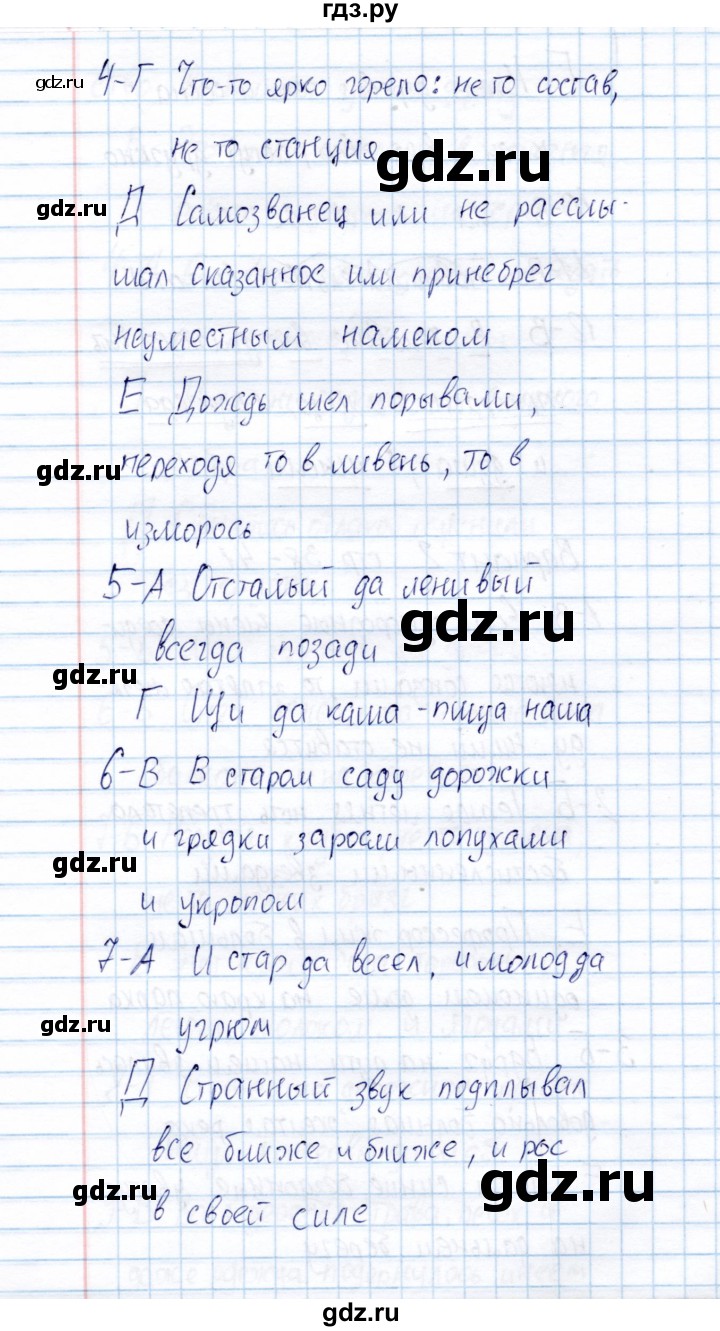 гдз.ру
gdz.ru
4-Г Что-то ярко горело: не то состав,
не то станция
gdz.ru
gdz.ru
Д Самозванец или не расслы-
шал сказанное или принебрег
неуместным намеком
Е Дождь шел порывами,
gdz.ru
переходя то в ливень, то в
изморось
5-А Отсталый да ленивый
gdz.ru
всегда позади
gdz.ru
Г Щи да каша - пища наша
6-В В старом саду дорожки
и грядки заросли лопухами
gdz.ru
и укропом
7-А И стар да весел, и молод да
gdz.ru
угрюм
Д Странный звук подплывал
все ближе и ближе, и рос
gdz.ru
gdz.ru
в своей силе
gdz.ru